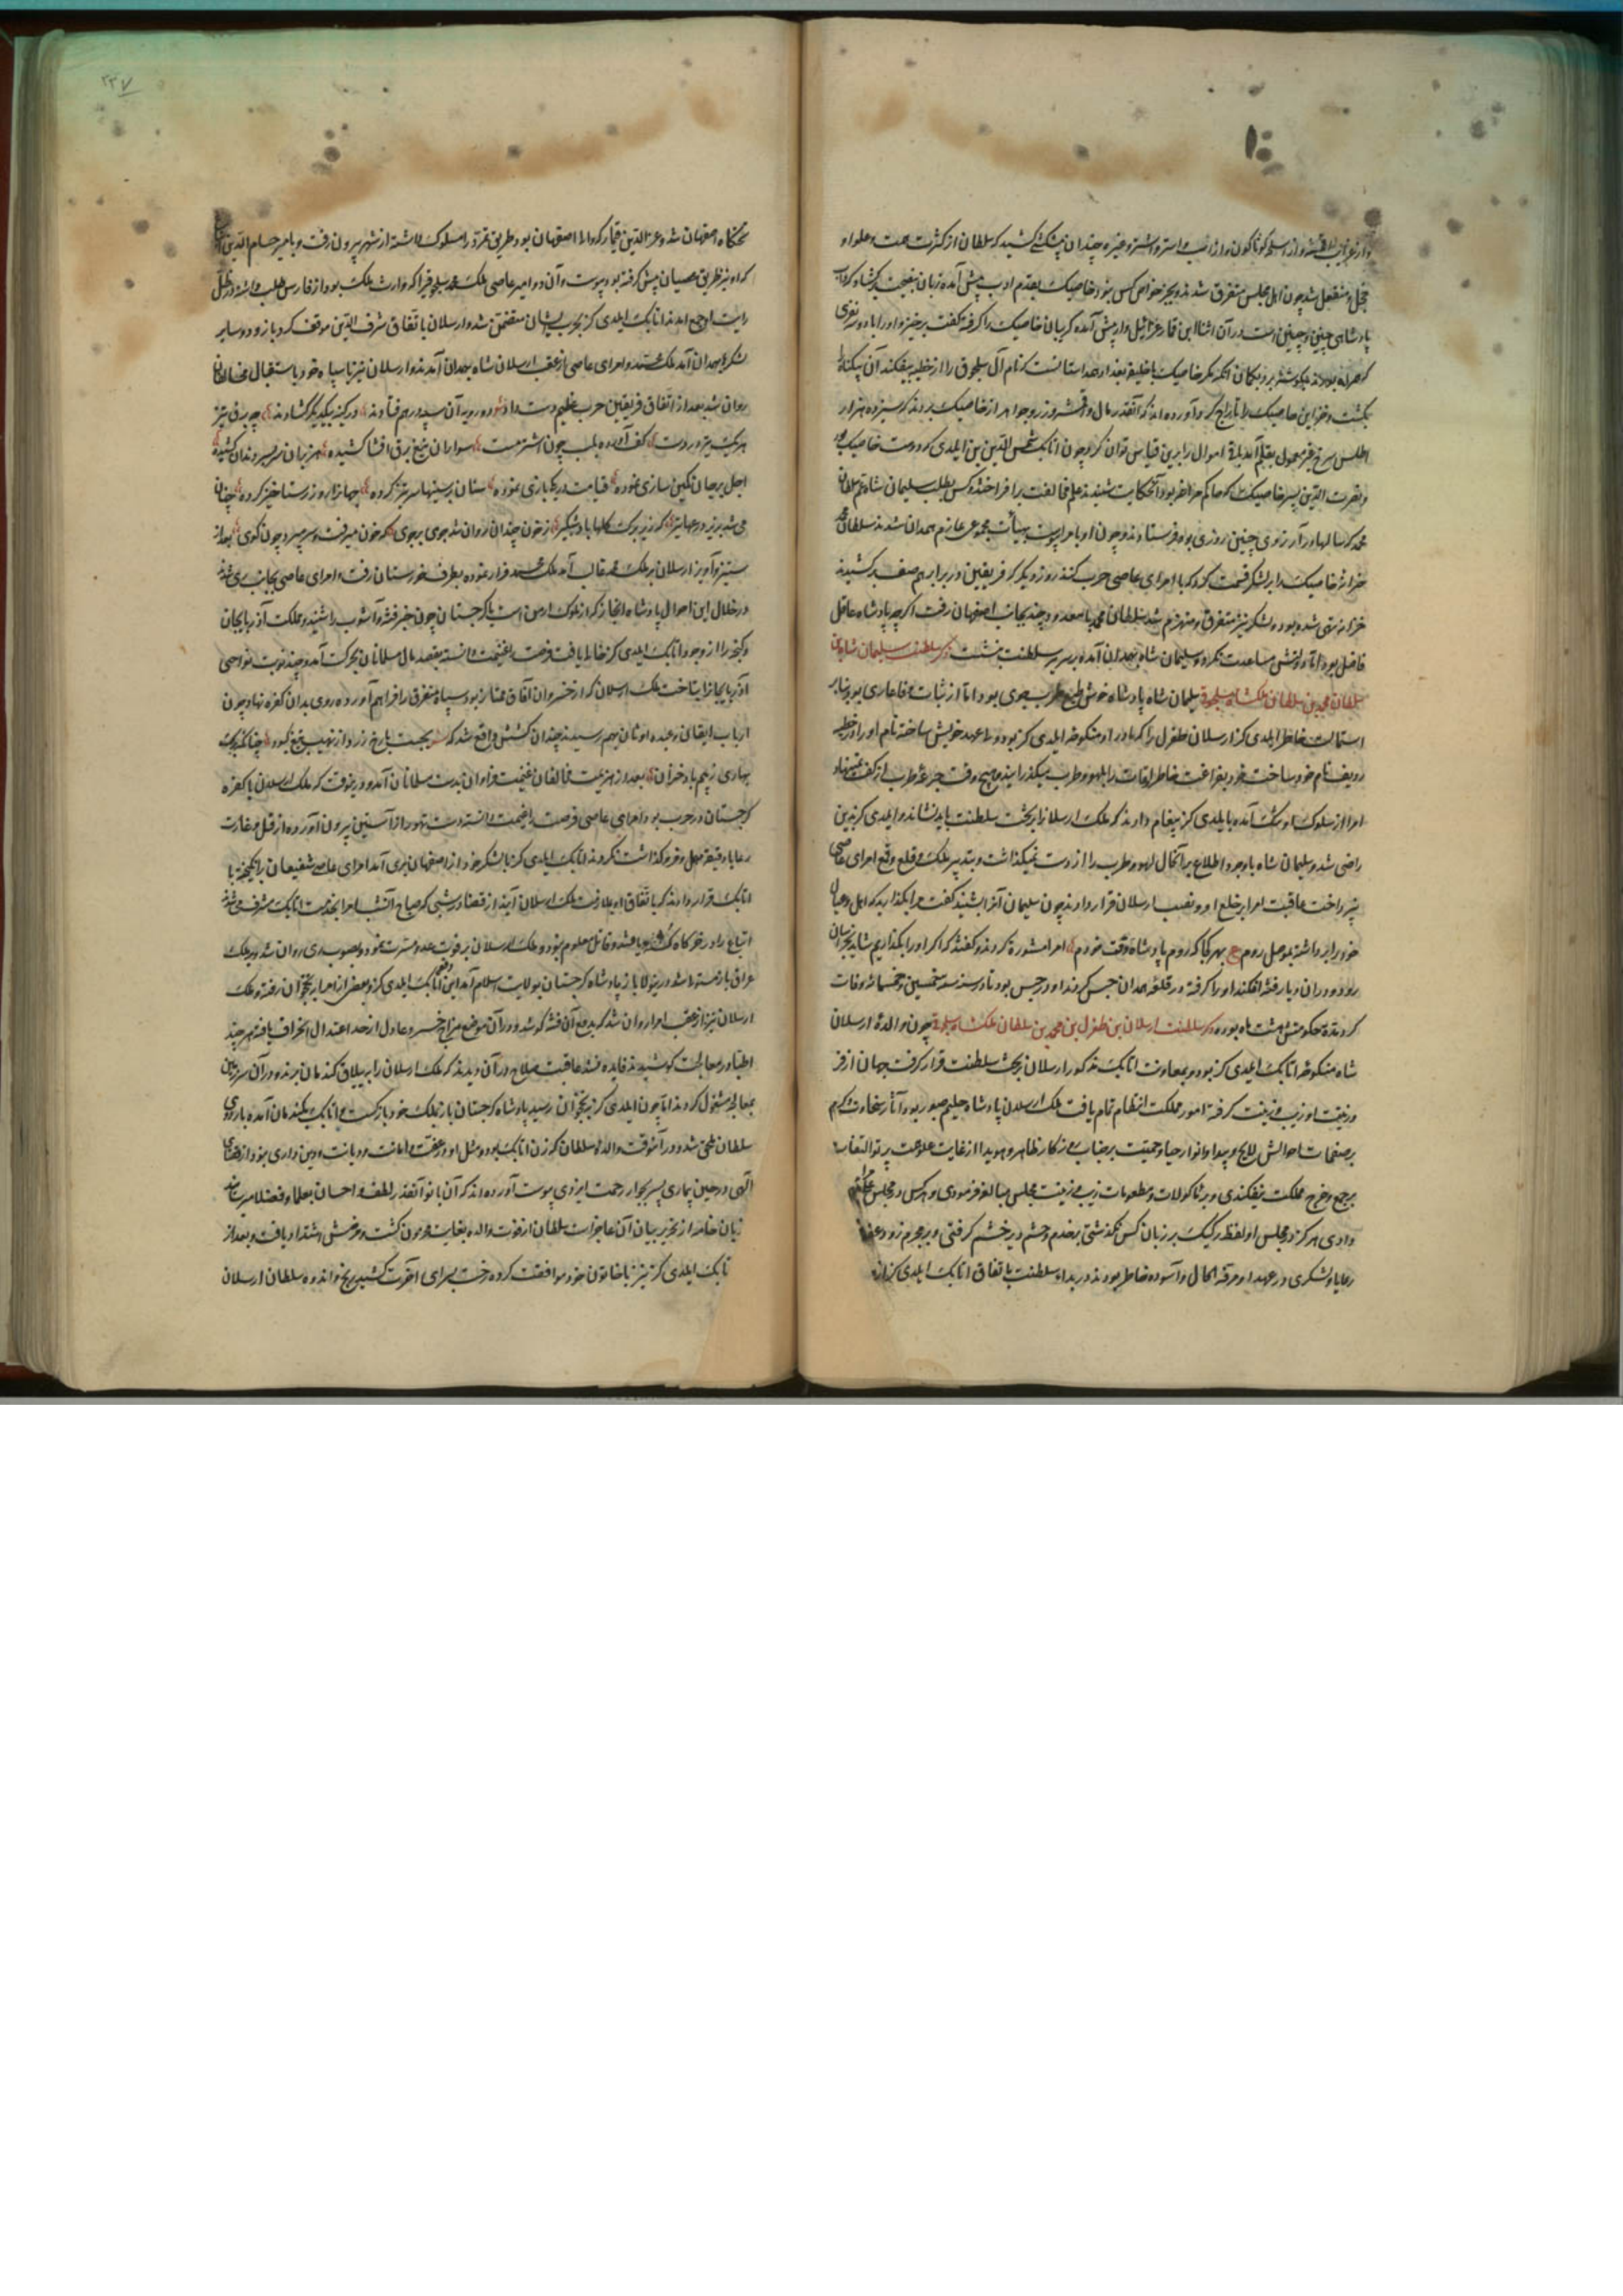 و از غرایب اقمشه و از اسلحه گوناگون و از اسب و استر و اشتر و غیره چندان پیشکش کشید که سلطان از کثرت همت و علو او
خجل و منفعل شد چون اهل مجلس متفرق شدند و بجز خواص کس نبود خاصبک بقدم ادب پیش آمده زبان بنصیحت برگشاد که
پادشاهی چنین و چنین است در آن اثنا این قماز عزرائیل وار پیش آمده گریبان خاصبک را گرفته گفت برخیز و او را با دو سه نفری
که همراه بودند بکوشه برد بگمان آنکه مگر خاصبک با خلیفه بغداد همداستانست که نام آل سلجوق را از خطبه بیفکند آن بیگناه را
بکشت و خزاین خاصبک را تاراج کرد آورده اند که آنقدر مال و اقمشه و زر و جواهر از خاصبک بردند که سیزده هزار
اطلس سرخ بقلم آمد باقی اموال را برین قیاس توان کرد چون اتابک شمس الدین ایلدی کز و دوست خاصبک
و نصرت الدین پسر خاصبک که حاکم بود آن حکایت شنیدند علم مخالفت برافراختند و کس بطلب سلیمان شاه عم سلطان
محمد که سالها در آرزوی چنین روزی بود فرستادند و چون او بامرا پیوست بهیأت مجموعی عازم همدان شدند سلطان محمد
خزانه خاصبک را بر لشکر قسمت کرد که با امرای عاصی حرب کنند روز دیگر که فریقین در برابر هم صف کشیدند
خزانه تهی شده بود و لشکر نیز متفرق و منهزم شد سلطان محمد با معدودی چند بجانب اصفهان رفت اگرچه پادشاه عاقل
فاضل بود اما دولتش مساعدت نکرد و سلیمان شاه بهمدان آمده بر سریر سلطنت بنشست ذکر سلطنت سلیمان شاه بن
سلطان محمد بن سلطان ملکشاه سلجوقی سلیمان شاه پادشاه خوش طبع طرب جوی بود اما از ثبات و وفا عاری بود بنابر
استمالت خاطر ایلدی کز ارسلان طغرل را که مادر او منکوحه ایلدی کز بود ولیعهد خویش ساخته نام او را در خطبه
ردیف نام خود ساخت خود بفراغت خاطر اوقات را بلهو و طرب میگذرانید و هیچ وقت جرعه طرب از کف نمینهاد
امرا از سلوک او بتنگ آمده بایلدی کز پیغام دادند که ملک ارسلان را بر تخت سلطنت باید نشاند و ایلدی کز بدین
راضی شد و سلیمان شاه با وجود اطلاع بر آن حال لهو و طرب را از دست نمیگذاشت و بتدبیر ملک و قلع و قمع امرای عاصی
نپرداخت عاقبت امرا بر خلع او و نصب ارسلان قرار دادند چون سلیمان آنرا بشنید گفت مرا بگذارید که اهل و عیال
خود را برداشته بموصل روم ع بهر کجا که روم پادشاه وقت خودم امرا مشوره کردند و گفتند که اگر او را بگذاریم شاید بخراسان
رود و دران دیار فتنه افکند او را گرفته در قلعه همدان حبس کردند او در حبس بود تا در سنه ست خمسین و خمسمائه وفات
کرد مدت حکومتش هشت ماه بوده ذکر سلطنت ارسلان بن طغرل بن محمد بن سلطان ملکشاه سلجوقی چون والده ارسلان
شاه منکوحه اتابک ایلدی کز بود و بمعاونت اتابک مذکور ارسلان بر تخت سلطنت قرار گرفت جهان از فر
و زینت او زیب و زینت گرفته امور مملکت انتظام تمام یافت ملک ارسلان پادشاه حلیم صبور بود آثار سخاوت و کرم
بر صفحات احوالش لایح و پیدا و انوار حیا و حمیت بر جناب بزرگوار ظاهر و هویدا از غایت علو همت پرتو التفات
بر جمع و خرج مملکت نیفکندی و بر ماکولات و مطعومات زیب و زینت مجلس مبالغه فرمودی و هر کس در مجلس
دادی هرگز در مجلس او لفظ رکیک بر زبان کس نگذشتی بر خدم و حشم دیر خشم گرفتی و بر مجرم زود عفو
رعایا و لشکری در عهد او مرفه الحال و آسوده خاطر بودند در بداء سلطنت باتفاق اتابک ایلدی کز از
تختگاه اصفهان شد و عزالدین قیماز که والی اصفهان بود طریق تمرد را مسلوک داشته از شهر بیرون رفت و با میر حسام الدین
که او نیز طریق عصیان پیش گرفته بود پیوست و آن دو امیر عاصی ملک محمد سلجوقی را که وارث ملک بود از فارس طلب داشته در ظل
رایت او جمع آمدند اتابک ایلدی کز بحرب ایشان متضمن شد و ارسلان باتفاق شرف الدین موقف کردبازو و سایر
لشکر بهمدان آمد ملک محمد و امرای عاصی از عقب ارسلان شاه بهمدان آمدند و ارسلان نیز با سپاه خود باستقبال مخالفان
روان شد بعد از اتفاق فریقین حرب عظیم دست داد دو رویه آن سپه در هم فتادند در کینه بیکدیگر گشادند چو برق تیز
هر یک تیز و ر دست کف آورده بلب چون اشتر مست سواران تیغ برق افشا کشیده هزبران سربسر دندان کشیده
اجل بر جان کمین سازی نموده قیامت در یکی بازی نموده سنان بر سینها سر تیز کرده جهان را روز رستاخیز کرده چنان
می شد بزیر درعها تیر که زیر برگ گلها باد شبگیر ز خون چندان روان شد جوی بر جوی که خون میرفت و سر میبرد چون گوی بعد از
ستیز و آویز ارسلان بر ملک محمد غالب آمد ملک محمد فرار نموده بطرف خوزستان رفت و امرای عاصی بجانب ری شدند
در خلال این احوال پادشاه ابخاز که از ملوک ارمن است با گرجستان چون خبر فتنه و آشوب را شنید و مملکت آذربایجان
و گنجه را از وجود اتابک ایلدی کز خالی یافت فرصت را غنیمت دانسته بقصد مال مسلمانان بحرکت آمد و چند نوبت نواحی
آذربایجان را بتاخت ملک ارسلان که از خسروان آفاق ممتاز بود سپاه متفرق را فراهم آورده روی بدان کفره نهاد چون
ارباب ایقان و عبده اوثان بهم رسیدند چندان کشش واقع شد که بجست با رخ زرد از نهیب تیغ کبود چنانکه برگ
بهاری ز بیم باد خزان بعد از هزیمت مخالفان غنیمت فراوان بدست سلطانیان آمد و درینوقت که ملک ارسلان با کفره
گرجستان در حرب بود امرای عاصی فرصت را غنیمت دانسته دست تهور از آستین بیرون آورده از قتل و غارت
رعایا دقیقه مهمل و فروگذاشت نکردند اتابک ایلدی کز با لشکر خود از اصفهان بری آمد امرای عاصی شفیعان برانگیخته با
اتابک قرار دادند که باتفاق او بملازمت ملک ارسلان آیند از قضا در شبی که صباح آن شب امرا بخدمت اتابک مشرف می شدند
اتباع را در خرگاه کشته یافتند و قاتل معلوم نبود و ملک ارسلان بر فوت عدو مسرت نموده بصوب ری روان شد و بر ملک
عراق باز مستولی شد و درینولا باز پادشاه گرجستان بولایت اسلام آمد این دفعه اتابک ایلدی کز و بعضی از امرا بنخجوان رفته و ملک
ارسلان نیز از عقب امرا روان شد که بدفع آن فتنه کوشد و در آن موضع مزاج خسرو عادل از حد اعتدال انحراف یافته هر چند
اطبا در معالجت کوشیدند فایده نشد عاقبت صلاح در آن دیدند که ملک ارسلان را به ییلاق کندمان بردند و در آن سرزمین
بمعالجه مشغول کردند اما چون ایلدی کز بنخجوان رسید پادشاه گرجستان باز بملک خود بازگشت و اتابک بکندمان آمده باردوی
سلطان ملحق شد و در آنوقت والده سلطان که زن اتابک بود و مثل او در عفت و امانت و دیانت و دین داری نبود از قضای
الهی در حین بیماری پسر بجوار رحمت ایزدی پیوست آورده اند که آن بانو آنقدر لطف و احسان بعلما و فضلا میرساند
زبان خامه از تحریر بیان آن عاجز است سلطان از فوت والده بغایت محزون گشت و مرضش اشتداد یافت و بعد از
تابک ایلدی کز نیز با خاتون خود موافقت کرده رخت بسرای آخرت کشید رنج و اندوه سلطان ارسلان